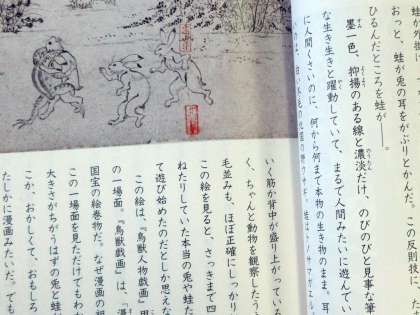 蛙が外掛け
おっと、蛙が兎の耳をがぶりとかんだ。この反則技に、た
ひるんだところを蛙が――。
墨一色、抑揚のある線と濃淡だけ、のびのびと見事な筆
な生き生きと躍動していて、まるで人間みたいに遊んでい
に人間くさいのに、何から何まで本物の生き物のまま。耳
いく筋か背中が盛り上がっている
く、ちゃんと動物を観察したう
毛並みも、ほぼ正確にしっかり
この絵を見ると、さっきまで四
ねたりしていた本当の兎や蛙た
て遊び始めたのだとしか思えな
この絵は、『鳥獣人物戯画』甲
の一場面。『鳥獣戯画』は、「漫
国宝の絵巻物だ。なぜ漫画の祖
この一場面を見ただけでもわか
大きさがちがうはずの兎と蛙
こか、おかしくて、おもしろ
たしかに漫画みたいだ。でも